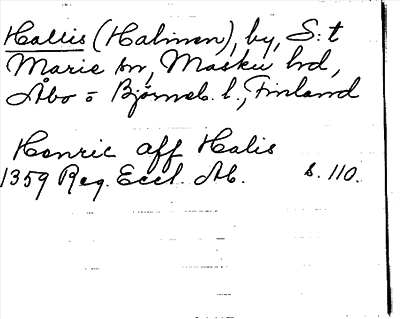 Hallis (Halinen), by, S:t
Marie sn, Masku hd,
Åbo o Björneb. l., Finland
Henric aff Halis
1359 Reg. Eccl. Ab. s. 110.